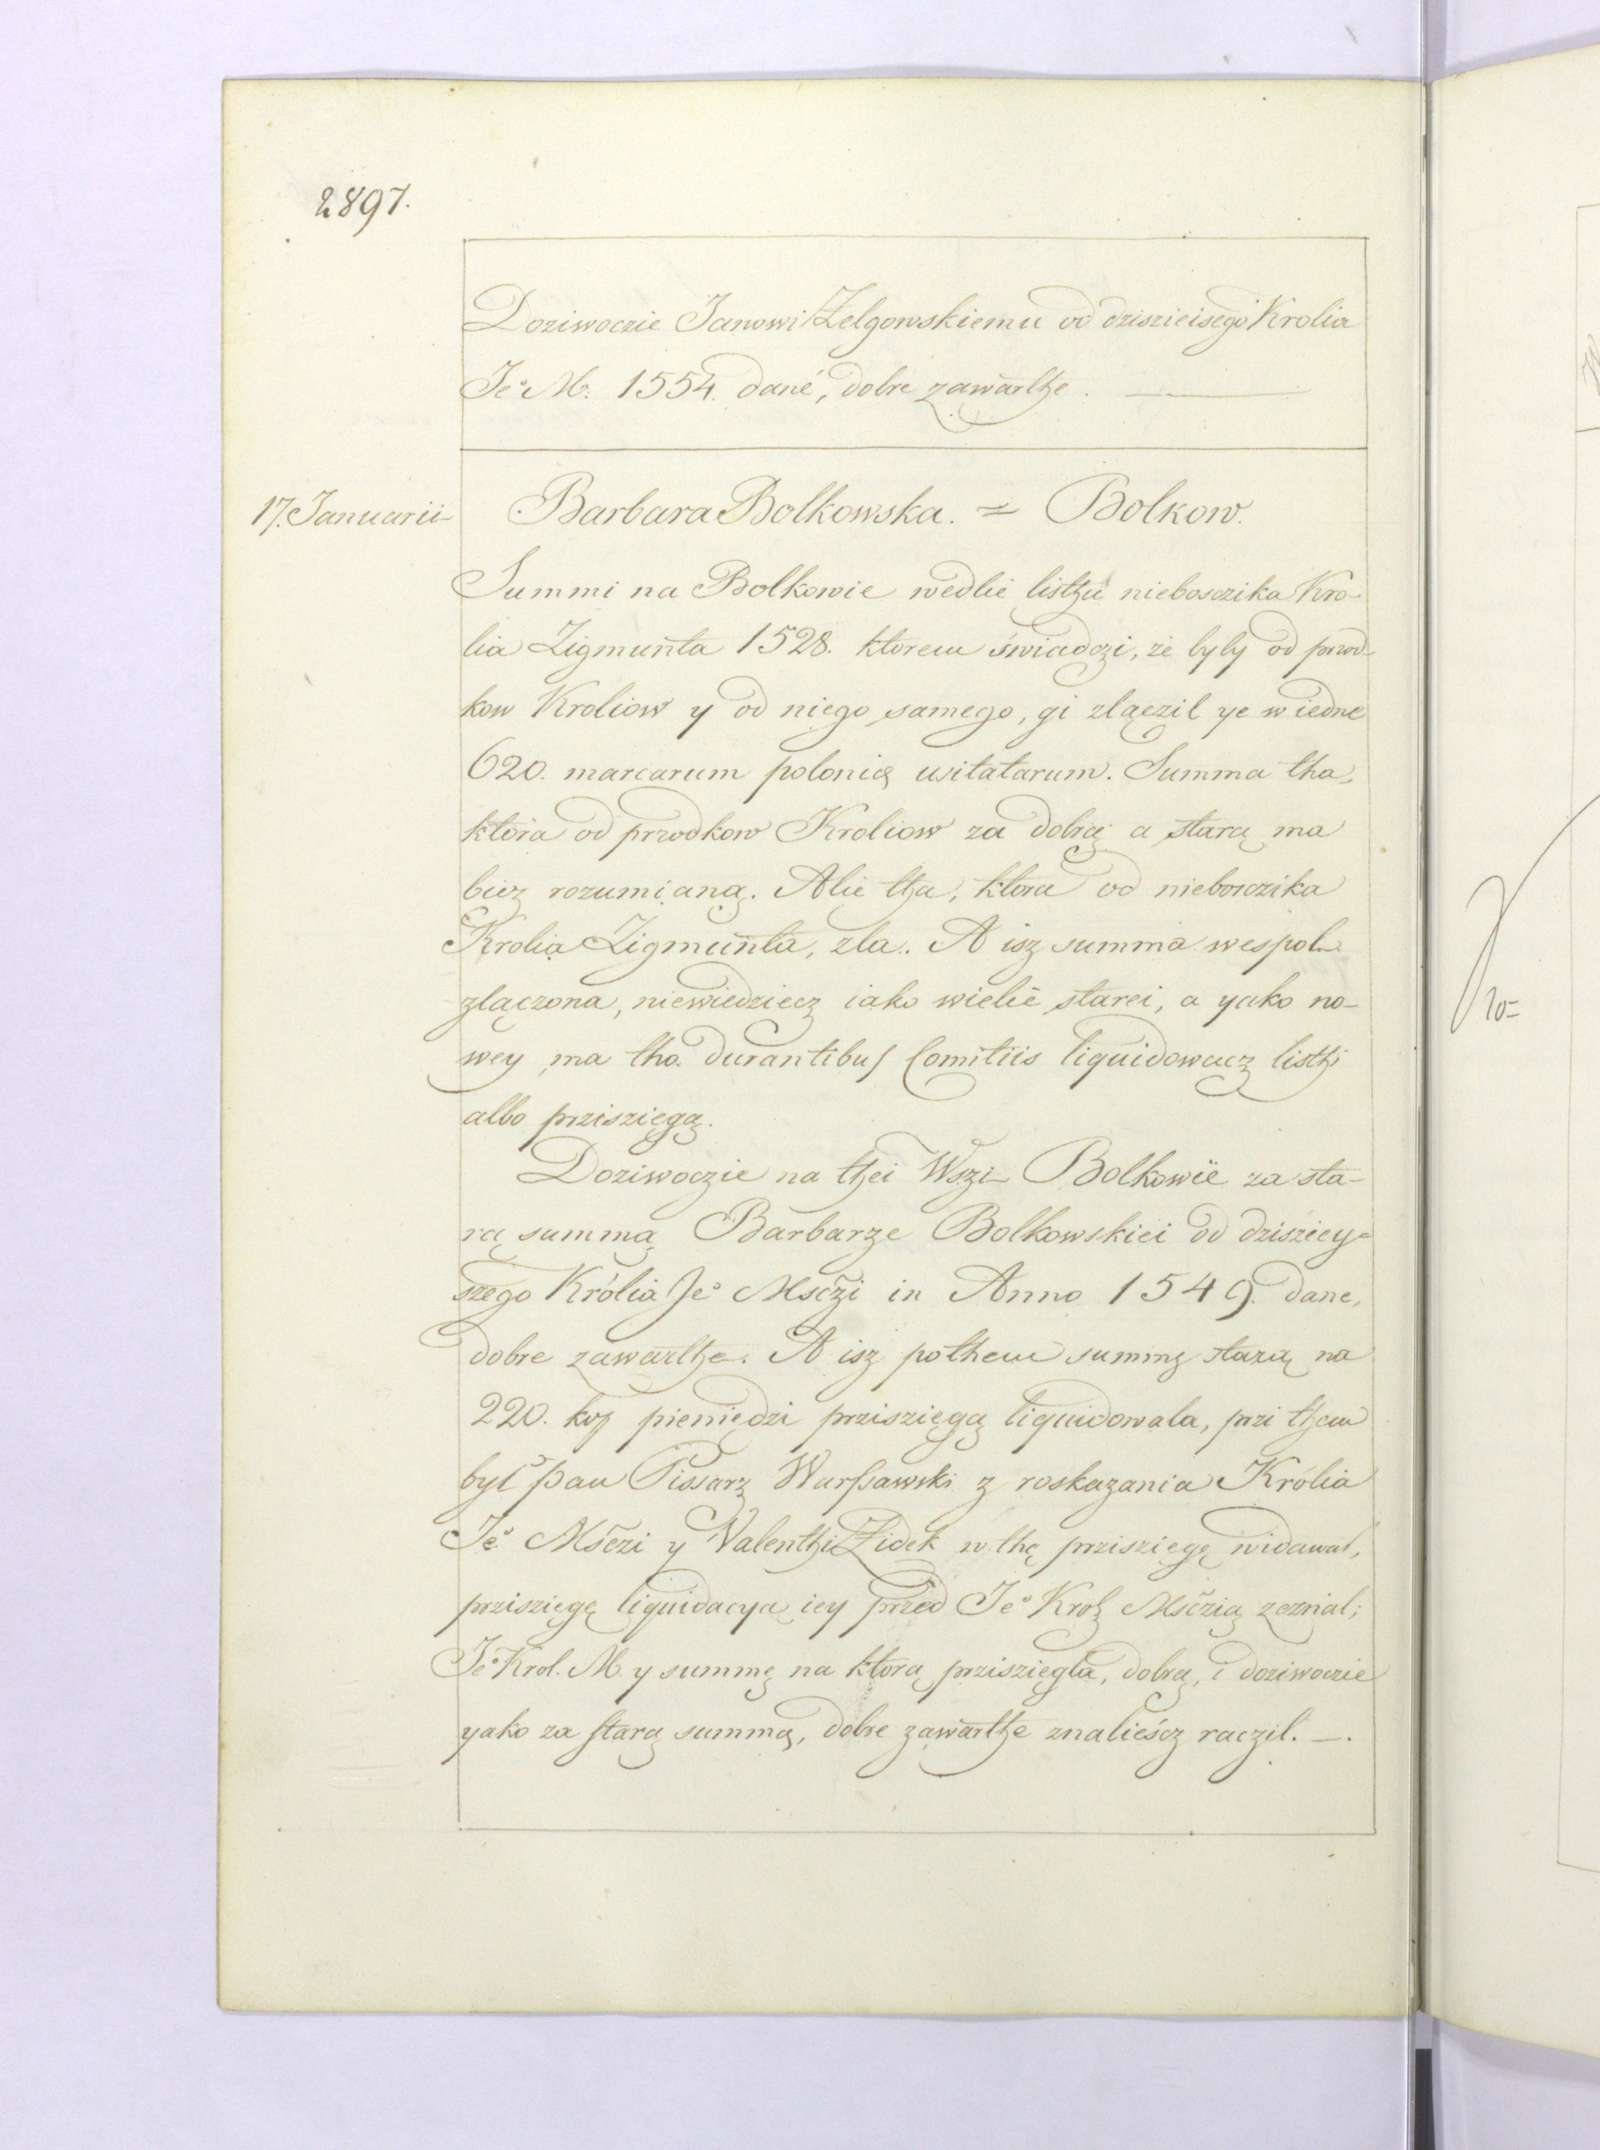 2897.
Doziwoczie Janowi Zelgowskiemu od dziszieisego Krolia
Jeº M: 1554. dané, dobre zawarthe.
17. Januarii
Barbara Bolkowska. = Bolkow.
Summi na Bolkowie wedlie listhu nieboszika Kro-
lia Zigmunta 1528. ktorem świadczi, że były od przod-
kow Kroliow y od niego samego, gi zlączil ye w iedne
620. marcarum polonię usitatarum. Summa tha,
ktora od przodkow Kroliow za dobrą a starą ma
biez rozumianą. Alie tha, ktora od nieboszika
Krolia Zigmunta, zla. A isz summa wespol
zlączona, niewiedziecz iako wielie starei, a yako no-
wey ma tho durantibus Comitiis liquidowacz listhi
albo prziszięgą.
Doziwoczie na thei Wszi Bolkowie za sta-
rą summą Barbarze Bolkowskiei od dzisziey-
szego Królia Jeº Msczi in Anno 1549. dane,
dobre zawarthe. A isz pothem summę starą na
220. kop pieniędzi prziszięgą liquidowala, przi them
był Pan Pissarz Warssawski z roskazania Królia
Jeº Msczi y Valenthi Zidek w thę prziszięgę widawał,
prziszięgę liquidacyą iey przed Jeº Krol Msczią zeznal;
Jeº Krol. M. y summę na ktorą prziszięgła, dobrą, i doziwoczie
yako za starą summą, dobre zawarthe znalieścz raczil. —.
10=